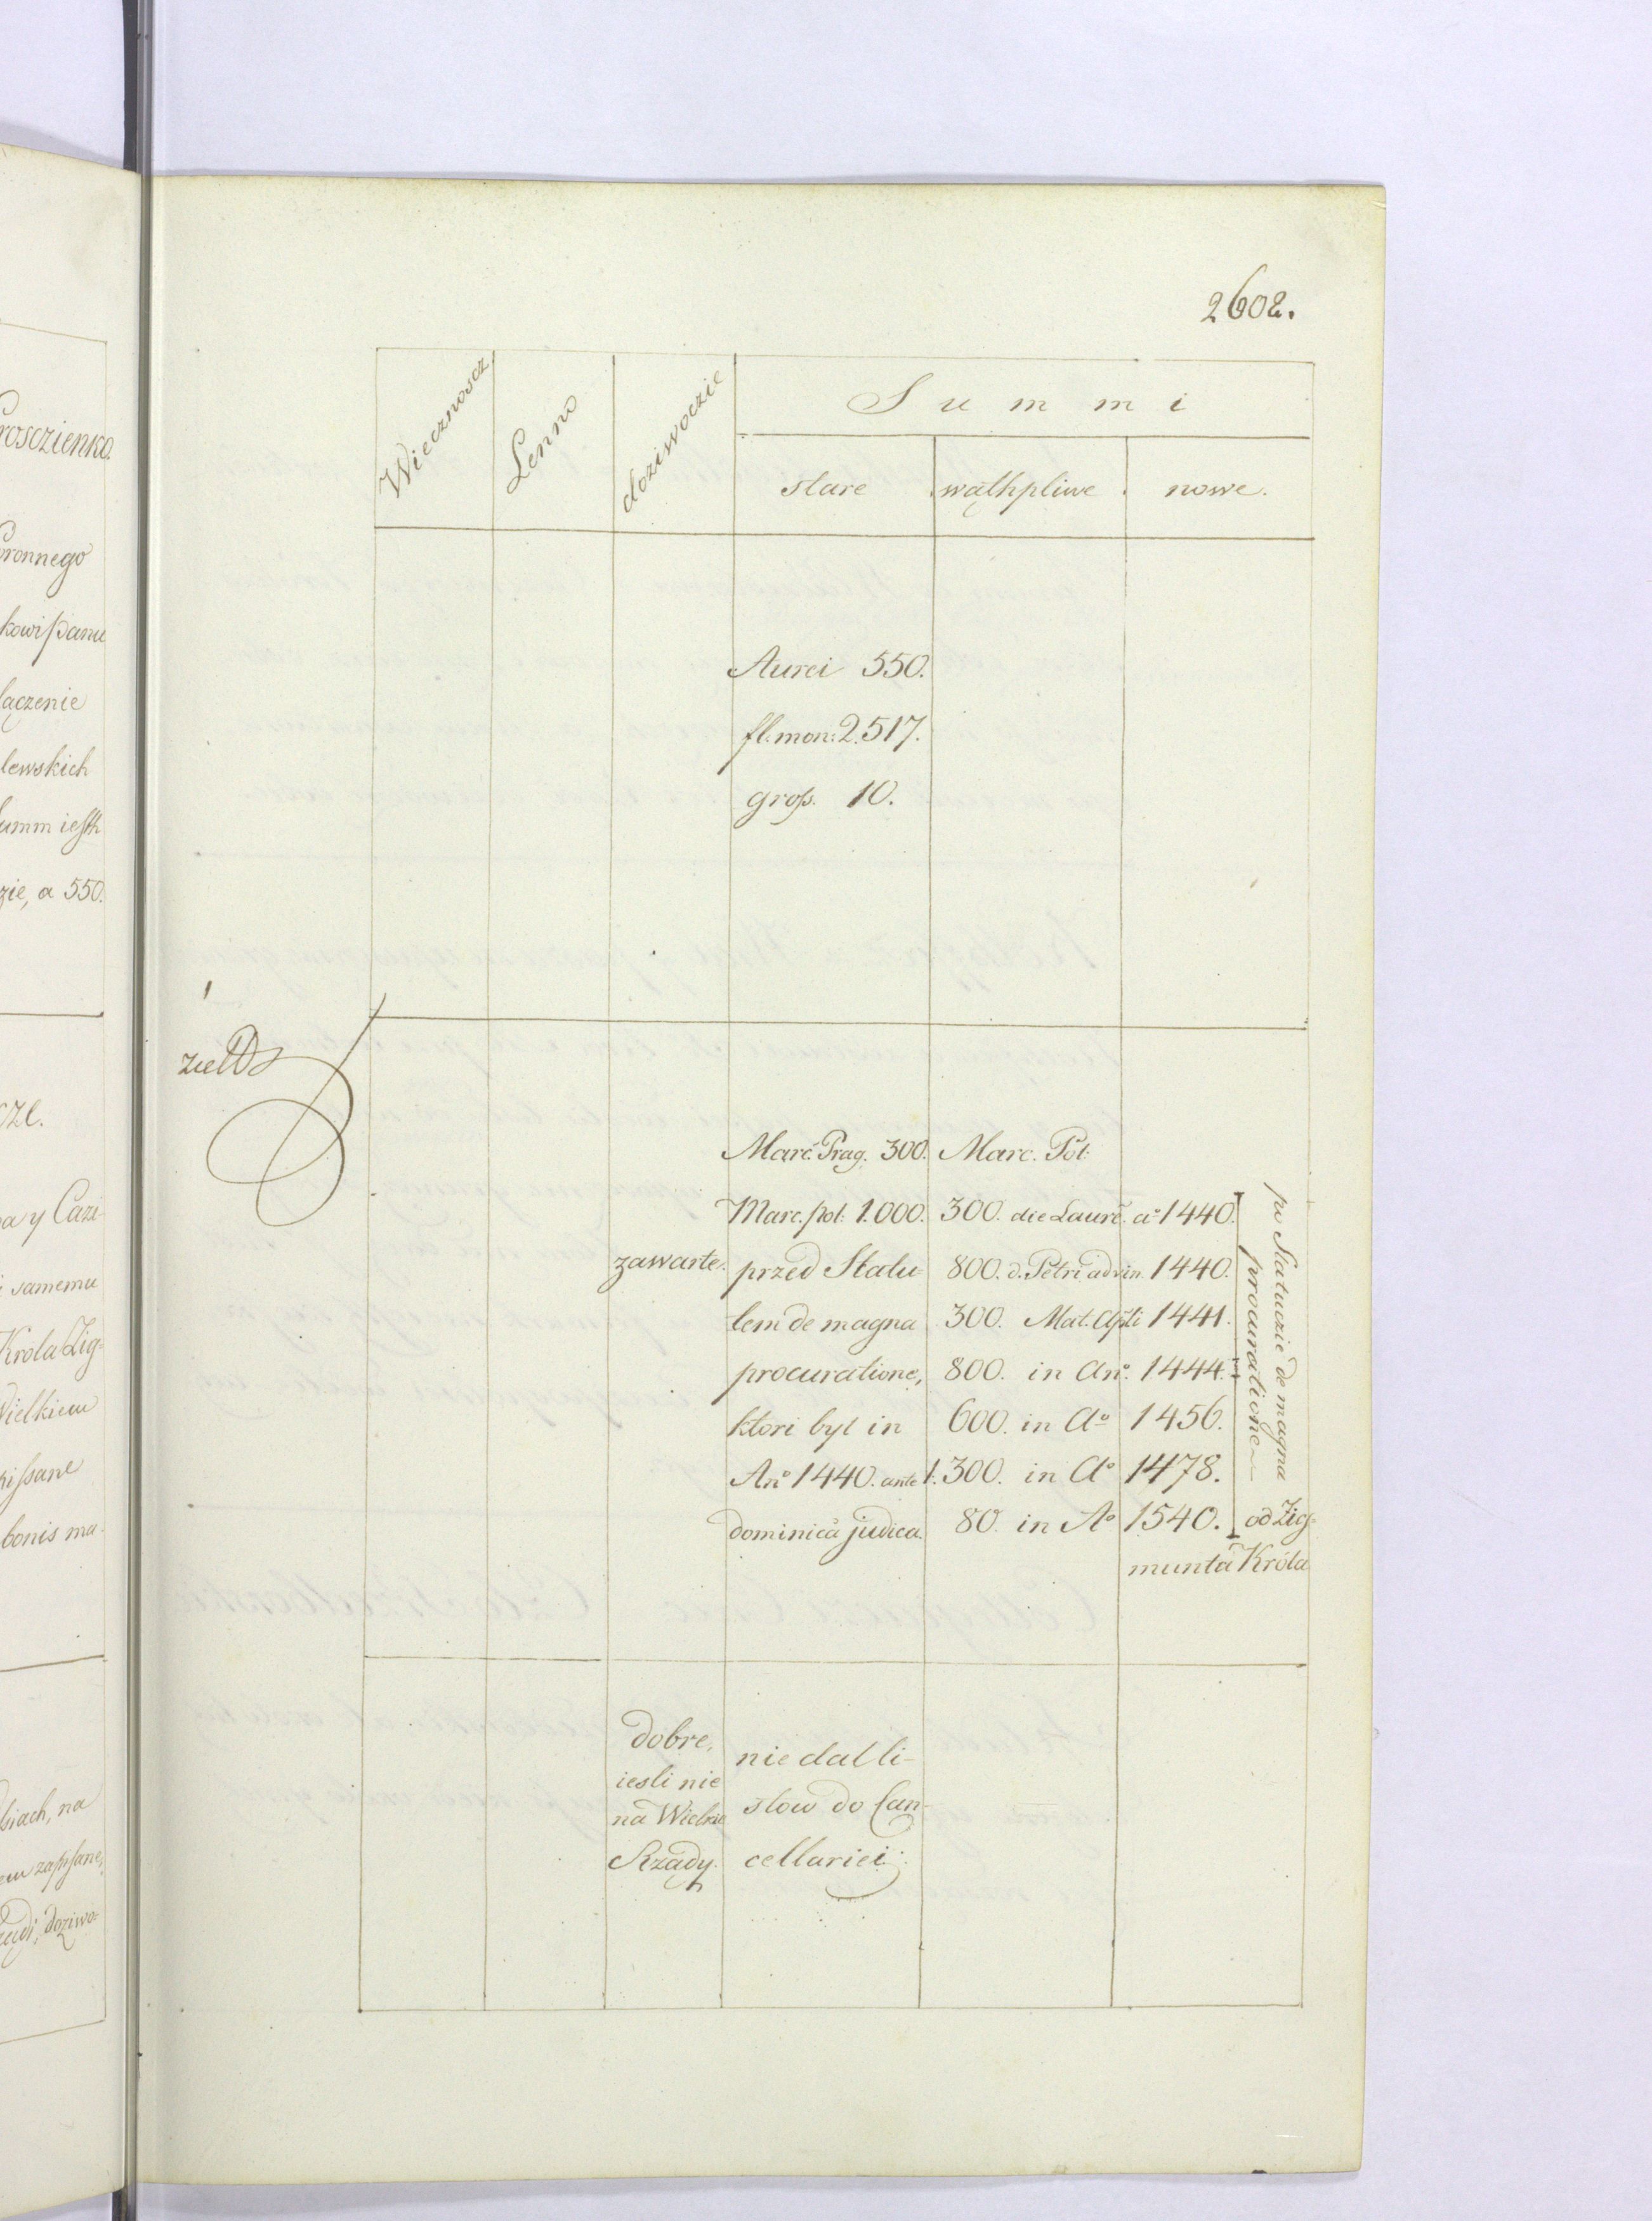 2602.
Wiecznoscz
Lenno
doziwoczie
Summi
stare
wąthpliwe
nowe.
Aurei 550.
fl: mon: 2.517.
gross. 10.
zawarte.
Marc. Prag. 300.
Marc. pol: 1.000.
przed Statu-
tem de magna
procuratione,
ktori byl in
Anº 1440. ante
dominicā judica.
Marc. Pol:
300. die Laurē. aº 1440.
800. d. Petri advin. 1440.
300. Mat. Apli 1441.
800. in Anº. 1444.
600. in Aº 1456.
1.300. in Aº 1478.
80. in Aº 1540. od Zig-
munta Króla
po Statuczie de magna
procuratione
dobre,
iesli nie
na Wielkie
Rządy.
nie dal li-
stow do Can-
cellariei.
roszczienko.
oronnego
kowi panu
łączenie
lewskich
summ iesth
zie, a 550.
cze.
pa y Cazi-
i samemu
Krola Zig-
Wielkiem
pissane
bonis ma-
siach, na
em zapsane,
doziwo-